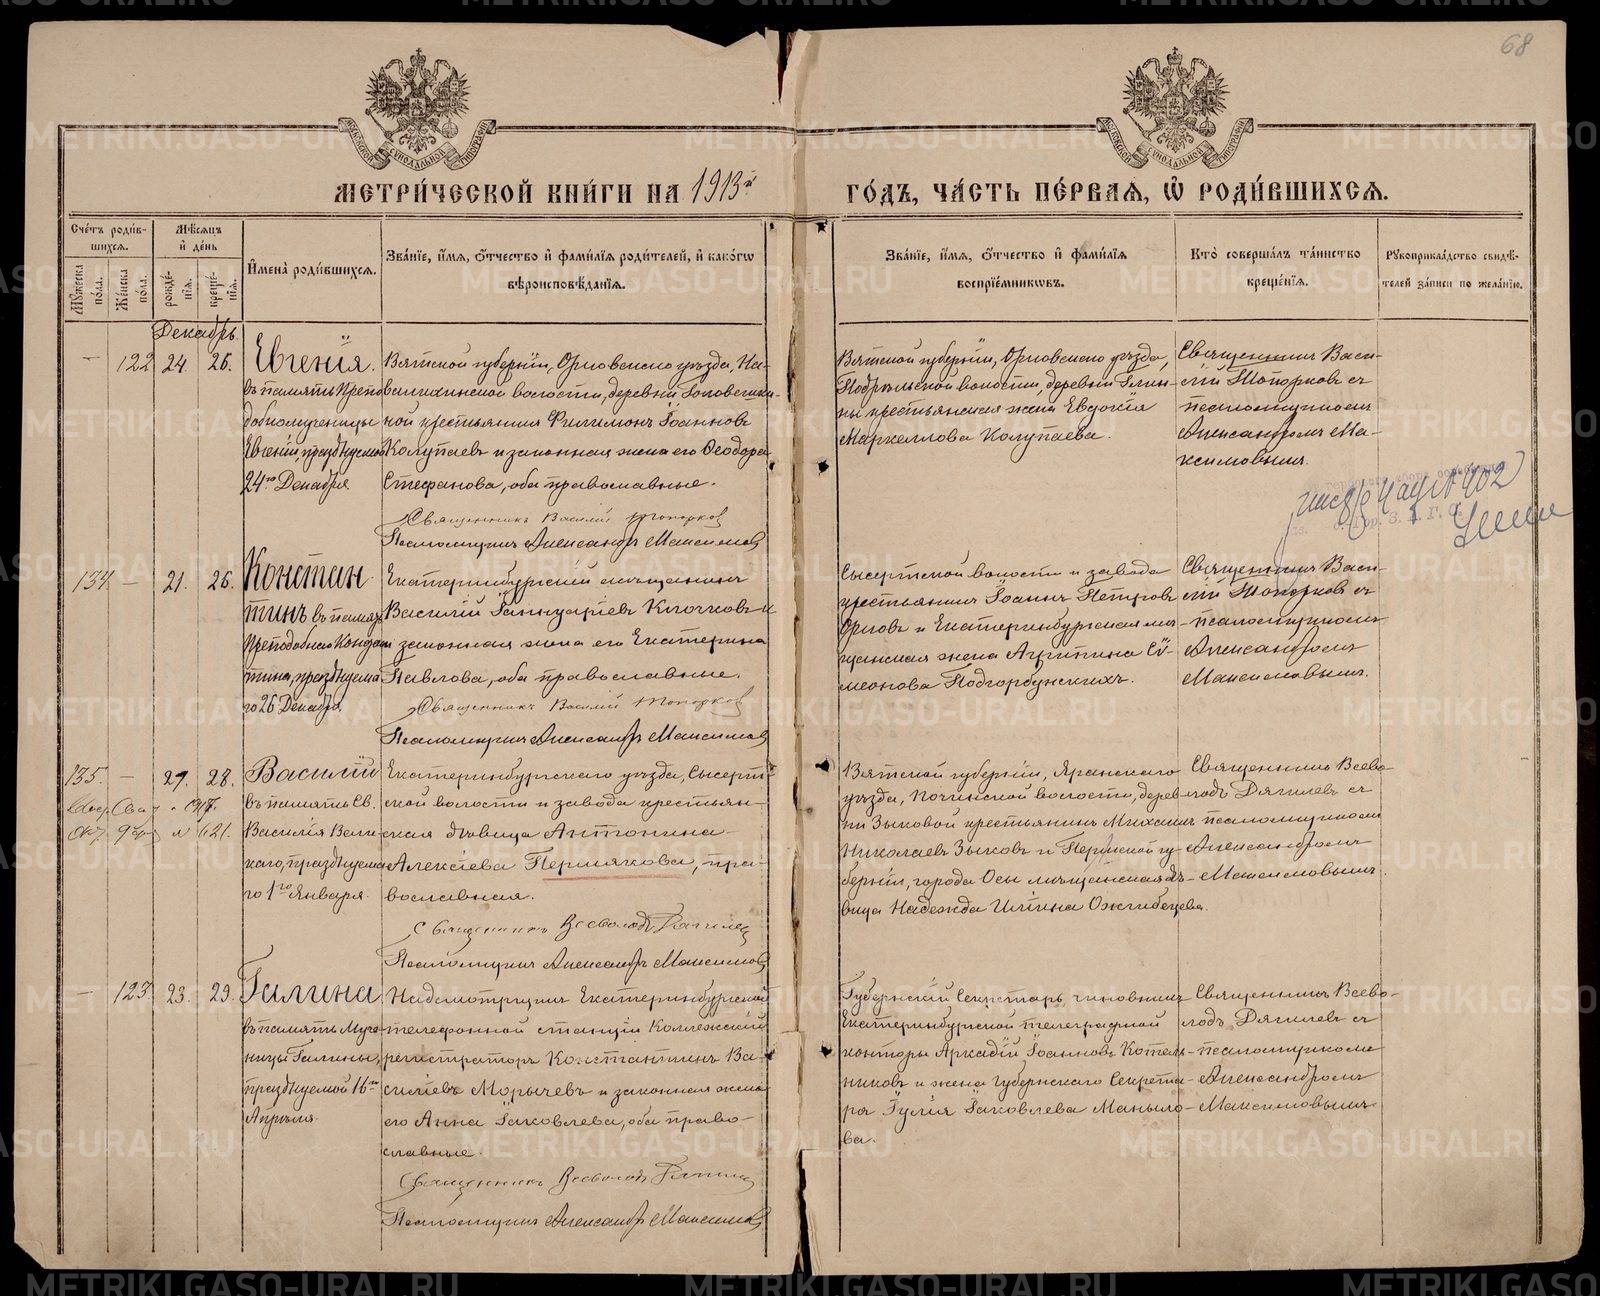 68
МЕТРИ́ЧЕСКОЙ КНИ́ГИ НА 1913й
ГО́ДЪ, ЧА́СТЬ ПЕ́РВАѦ, Ѡ҆ РОДИ́ВШИХСѦ.
Сче́тъ роди́в-
шихсѧ.
Му́жеска по́ла.
Же́нска по́ла.
Мѣ́сѧцъ и҆ де́нь
рожде́-
нїѧ.
креще́-
нїѧ.
И҆мена̀ роди́вшихсѧ.
Зва́нїе, и҆́мѧ, ѻ҆́тчество и҆ фамі́лїѧ роди́телей, и҆ како́гѡ
вѣроисповѣ́данїѧ.
Зва́нїе, и҆́мѧ, ѻ҆́тчество и҆ фамі́лїѧ
воспрїе́мникѡвъ.
Кто̀ соверша́лъ та́инство
креще́нїѧ.
Рꙋкоприкла́дство свидѣ́-
телей за́писи по жела́нїю.
Декабрь
— 122 24. 26.
Евгенія.
въ память Препо-
добномученицы
Евгеніи, празднуемой
24го Декабря
Вятской губерніи, Орловскаго уѣзда,
волости, деревни
крестьянинъ Филимонъ Іоанновъ
Колупаевъ и законная жена его Ѳеодора
Стефанова, оба православные.
Священникъ Василій Топорковъ
Псаломщикъ Александръ Максимовъ
Вятской губерніи, Орловскаго уѣзда,
волости, деревни
крестьянская жена Евдокія
Маркеллова Колупаева.
Священникъ Васи-
лій Топорковъ съ
псаломщикомъ
Александромъ Ма-
ксимовымъ.
134. — 21. 26.
Констан-
тинъ въ память
Преподобнаго Констан-
тина, празднуема-
го 26 Декабря
Екатеринбургскій мѣщанинъ
Василій Іаннуаріевъ Клочковъ и
законная жена его Екатерина
Павлова, оба православные.
Священникъ Василій Топорковъ
Псаломщикъ Александръ Максимовъ
Сысертской волости и завода
крестьянинъ Іоаннъ Петровъ
Орловъ и Екатеринбургская мѣ-
щанская жена Агрипина Сѵ-
меонова Подгорбунскихъ.
Священникъ Васи-
лій Топорковъ съ
псаломщикомъ
Александромъ
Максимовымъ.
135. — 27. 28.
621.
Василій
въ память Св.
Василія Вели-
каго, празднуема-
го 1го Января.
Екатеринбургскаго уѣзда, Сысерт-
ской волости и завода крестьян-
ская дѣвица Антонина
Алексіева Пермякова, пра-
вославная.
Священникъ Всеволодъ Дягилевъ
Псаломщикъ Александръ Максимовъ
Вятской губерніи, Яранскаго
уѣзда, Починской волости, дерев-
ни Зыковой крестьянинъ Михаилъ
Николаевъ Зыковъ и Пермской гу-
берніи, города Осы мѣщанская дѣ-
вица Надежда Иліина Ожгибецева.
Священникъ Всево-
лодъ Дягилевъ съ
псаломщикомъ
Александромъ
Максимовымъ.
— 123. 23. 29.
Галина
въ память Муче-
ницы Галины,
празднуемой 16го
Апрѣля.
Надсмотрщикъ Екатеринбургской
телефонной станціи Коллежскій
регистраторъ Константинъ Ва-
силіевъ Морычевъ и законная жена
его Анна Іаковлева, оба право-
славные.
Священникъ Всеволодъ Дягилевъ
Псаломщикъ Александръ Максимовъ
Губернскій Секретарь, чиновникъ
Екатеринбургской телеграфной
конторы Аркадій Іоанновъ Котель-
никовъ и жена Губернскаго Секрета-
ря Іулія Іаковлева Маныло-
ва.
Священникъ Всево-
лодъ Дягилевъ съ
псаломщикомъ
Александромъ
Максимовымъ.
METRIKI.GASO-URAL.RU